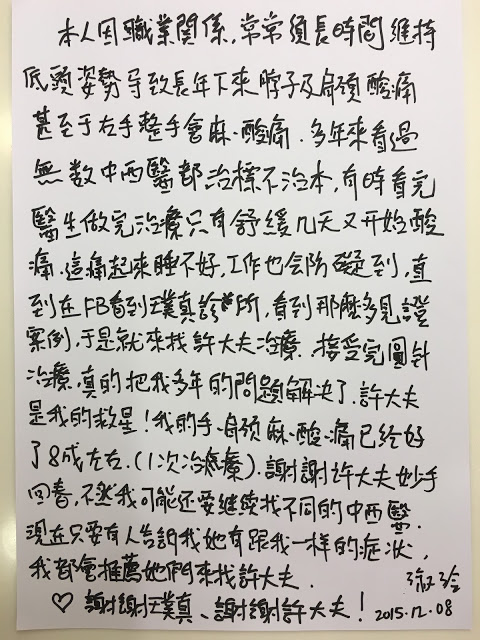 本人因職業關係,常常須長時間維持
低頭姿勢导致長年下來脖子及肩頸酸痛
甚至于右手整手會麻、酸痛．多年來看過
無数中西醫都治標不治本,有時看完
醫生做完治療只有舒緩几天又开始酸
痛．這痛起來睡不好,工作也会防礙到,直
到在FB看到璞真診所,看到那麼多見證
案例,于是就來找許大夫治療．接受完圓針
治療,真的把我多年的問題解决了．許大夫
是我的救星!我的手、肩頸麻、酸、痛已经好
了8成左右．(1次治療)．謝謝許大夫妙手
回春,不然我可能还要继续找不同的中西醫．
現在只要有人告訴我她有跟我一样的症状,
我都會推薦她們來找許大夫．
♡ 謝謝璞真、謝謝許大夫!
2015.12.08